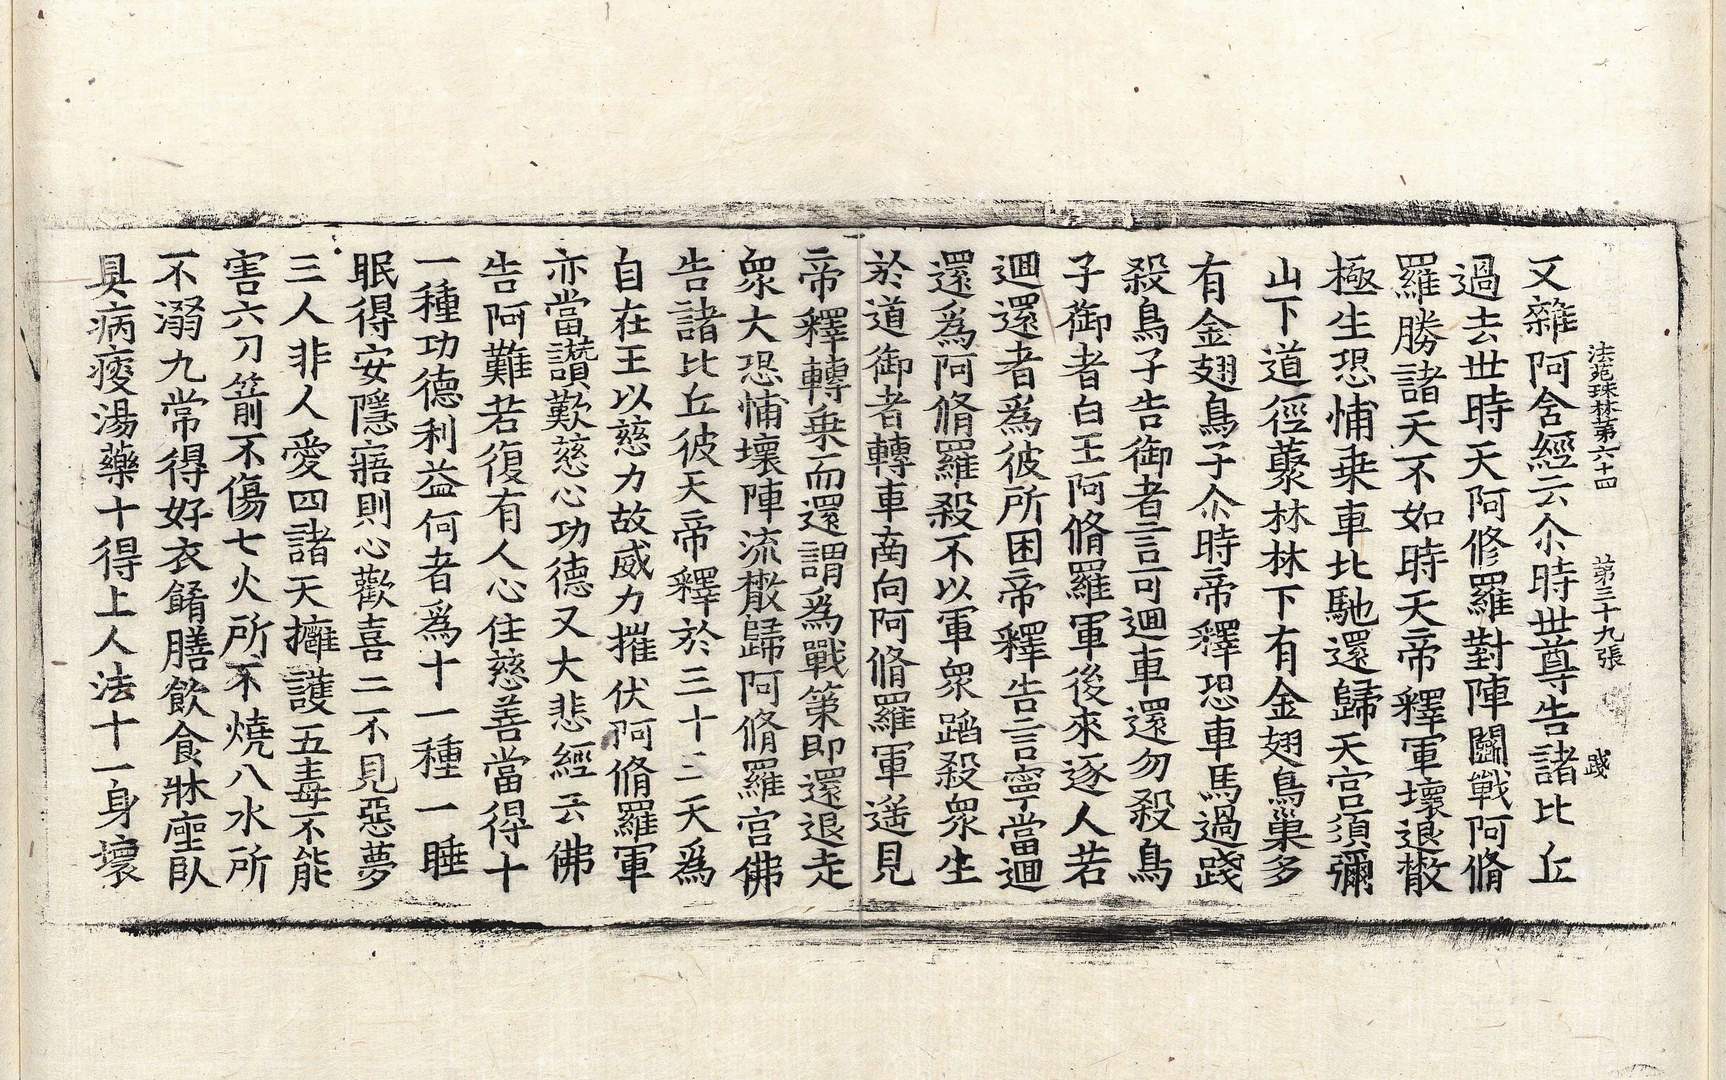 法苑珠林第六十四　第三十九張　踐
又雜阿含經云尒時世尊告諸比丘
過去世時天阿修羅對陣鬪戰阿脩
羅勝諸天不如時天帝釋軍壞退散
極生恐怖乗車北馳還歸天宮須彌
山下道徑藂林林下有金翅鳥巢多
有金翅鳥子尒時帝釋恐車馬過踐
殺鳥子告御者言可迴車還勿殺鳥
子御者白王阿脩羅軍後來逐人若
迴還者爲彼所困帝釋告言寧當迴
還爲阿脩羅殺不以軍衆蹈殺衆生
於道御者轉車南向阿脩羅軍遥見
帝釋轉乗而還謂爲戰策即還退走
衆大恐怖壞陣流散歸阿脩羅宮佛
告諸比丘彼天帝釋於三十三天爲
自在王以慈力故威力摧伏阿脩羅軍
亦當讃歎慈心功德又大悲經云佛
告阿難若復有人心住慈善當得十
一種功德利益何者爲十一種一睡
眠得安隱寤則心歡喜二不見惡夢
三人非人愛四諸天擁護五毒不能
害六刀箭不傷七火所不燒八水所
不溺九常得好衣餚膳飲食牀座臥
具病瘦湯藥十得上人法十一身壞